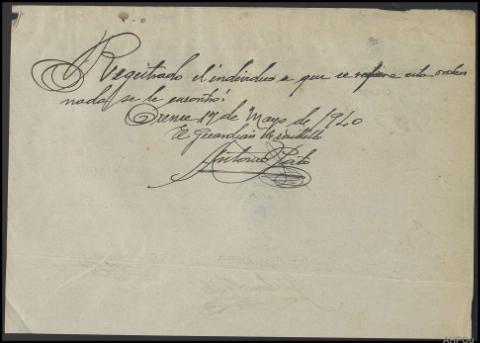 Registrado el individuo a que se refiere esta orden
nada se le encontró.
Orense 17 de Mayo de 1940
El Guardian
Antonio
AHPOu